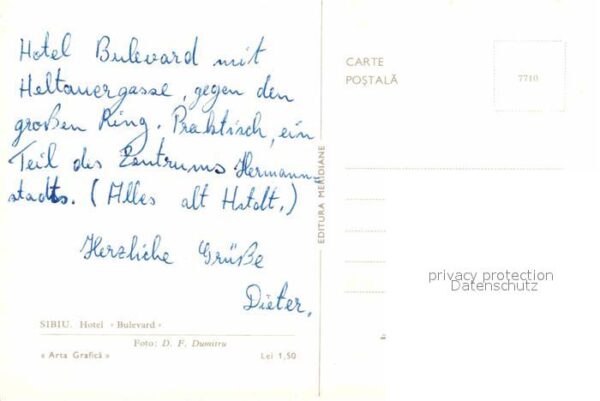 Hotel Bulevard mit
Heltauergasse, gegen den
großen Ring. Praktisch, ein
Teil des Zentrums Hermann-
stadts. (Alles alt Hstdt.)
Herzliche Grüße
Dieter.
SIBIU. Hotel «Bulevard»
Foto: D. F. Dumitru
« Arta Grafică »
Lei 1,50
EDITURA MERIDIANE
CARTE
POȘTALĂ
7710
privacy protection
Datenschutz